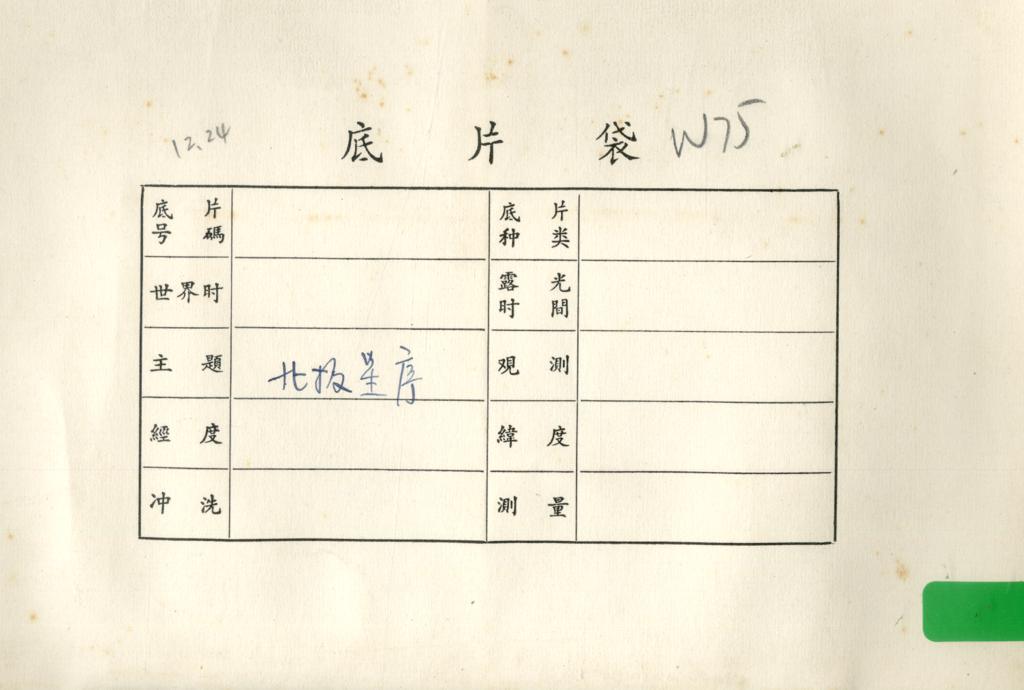 12.24 底片袋 W75
底片号碼 底片种类
世界时 露光时間
主題 北极星序 观測
經度 緯度
冲洗 測量